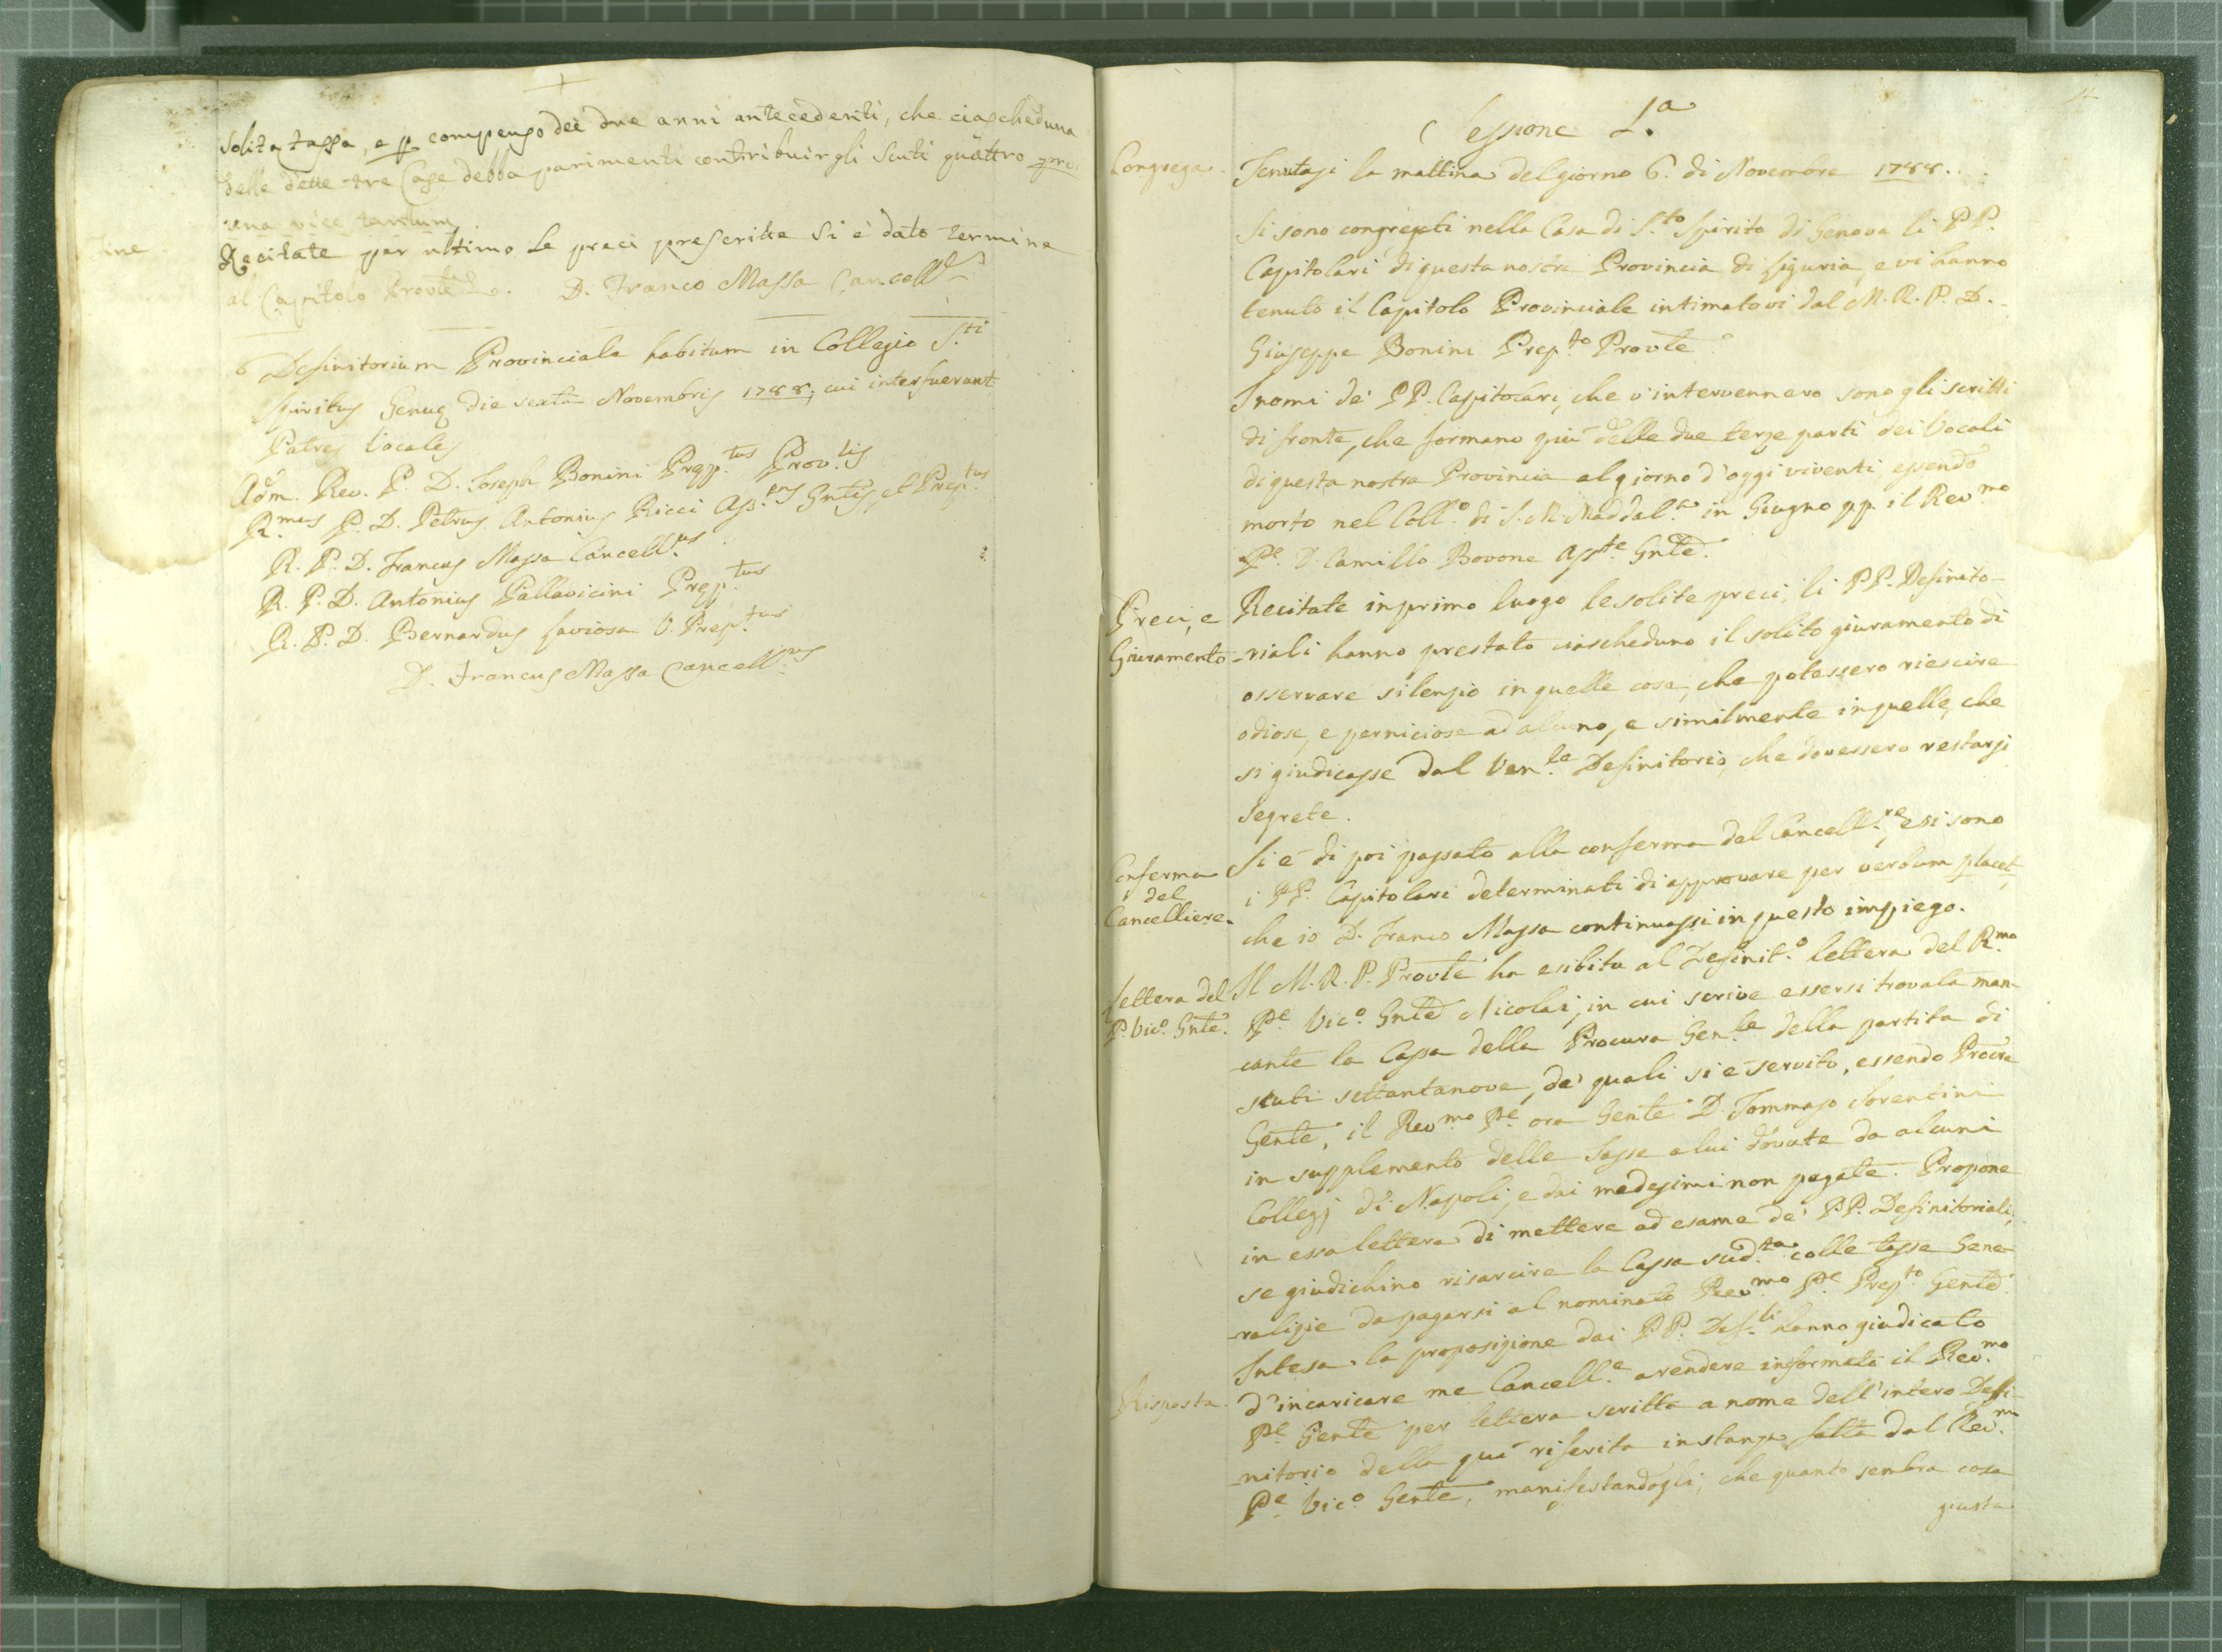 solita tassa, e p compenso dei due anni antecedenti, che ciascheduna
delle dette tre Case debba parimenti contribuirgli Scuti quattro pro
una vice tantum
Fine
Recitate per ultimo le preci prescritte si è dato termine
al Capitolo Provle. D. Franco Massa Cancellre
Definitorium Provinciale habitum in Collegio S.ti
Spiritus Genuę die sexta Novembris 1788; cui interfuerunt
Patres Vocales
Adm. Rev. P. D. Joseph Bonini Pręp.tus Prov.lis
R.mus P. D. Petrus Antonius Ricci Ass.ens Gntis, et Prep.tus
R. P. D. Francus Massa Cancell.us
R. P. D. Antonius Pallavicini Pręp.tus
R. P. D. Bernardus Laviosa V. Prep.tus
D. Francus Massa Cancell.us
Sessione I.a
Congrega
Tenutasi la mattina del giorno 6. di Novembre 1788.
Si sono congregati nella Casa di S.to Spirito di Genova li PP.
Capitolari di questa nostra Provincia di Liguria, e vi hanno
tenuto il Capitolo Provinciale intimatovi dal M. R. P. D.
Giuseppe Bonini Prep.to Provle
I nomi de' PP. Capitolari, che v'intervennero sono gli scritti
di fronte, che formano più delle due terze parti dei Vocali
di questa nostra Provincia al giorno d'oggi viventi, essendo
morto nel Coll.o di S. M. Maddal.a in Giugno pp. il Rev.mo
Pe D. Camillo Bovone Ass.te Gnle.
Preci, e
Giuramento
Recitate in primo luogo le solite preci, li PP. Definito-
-riali hanno prestato ciascheduno il solito giuramento di
osservare silenzio in quelle cose, che potessero riescire
odiose, e perniciose ad alcuno, e similmente in quelle, che
si giudicasse dal Ven.le Definitorio, che dovessero restarsi
segrete.
Conferma
del
Cancelliere
Si è di poi passato alla conferma del Cancell.re, e si sono
i PP. Capitolari determinati di approvare per verbum placet,
che io D. Franco Massa continuassi in questo impiego.
Lettera del
P. Vic.o Gnle.
Il M. R. P. Provle ha esibita al Definit.o lettera del R.mo
Pe Vic.o Gnle Nicolai, in cui scrive essersi trovata man-
cante la Cassa della Procura Gen.le della partita di
scuti settantanove, de' quali si è servito, essendo Procre
Genle, il Rev.mo Pe ora Genle D. Tommaso Sorentini
in supplemento delle Tasse a lui dovute da alcuni
Collegj di Napoli, e dai medesimi non pagate. Propone
in essa lettera di mettere ad esame de' PP. Definitoriali,
se giudichino risarcire la Cassa sud.ta colle tasse Gene-
-ralizie da pagarsi al nominato Rev.mo Pe Prep.to Genle.
Risposta
Intesa la proposizione dai PP. Def.li hanno giudicato
d'incaricare me Cancell.e a rendere informato il Rev.mo
Pe Genle per lettera scritta a nome dell'intero Defi-
-nitorio della quì riferita instanza fatta dal Rev.mo
Pe Vic.o Genle, manifestandogli, che quanto sembra cosa
giusta